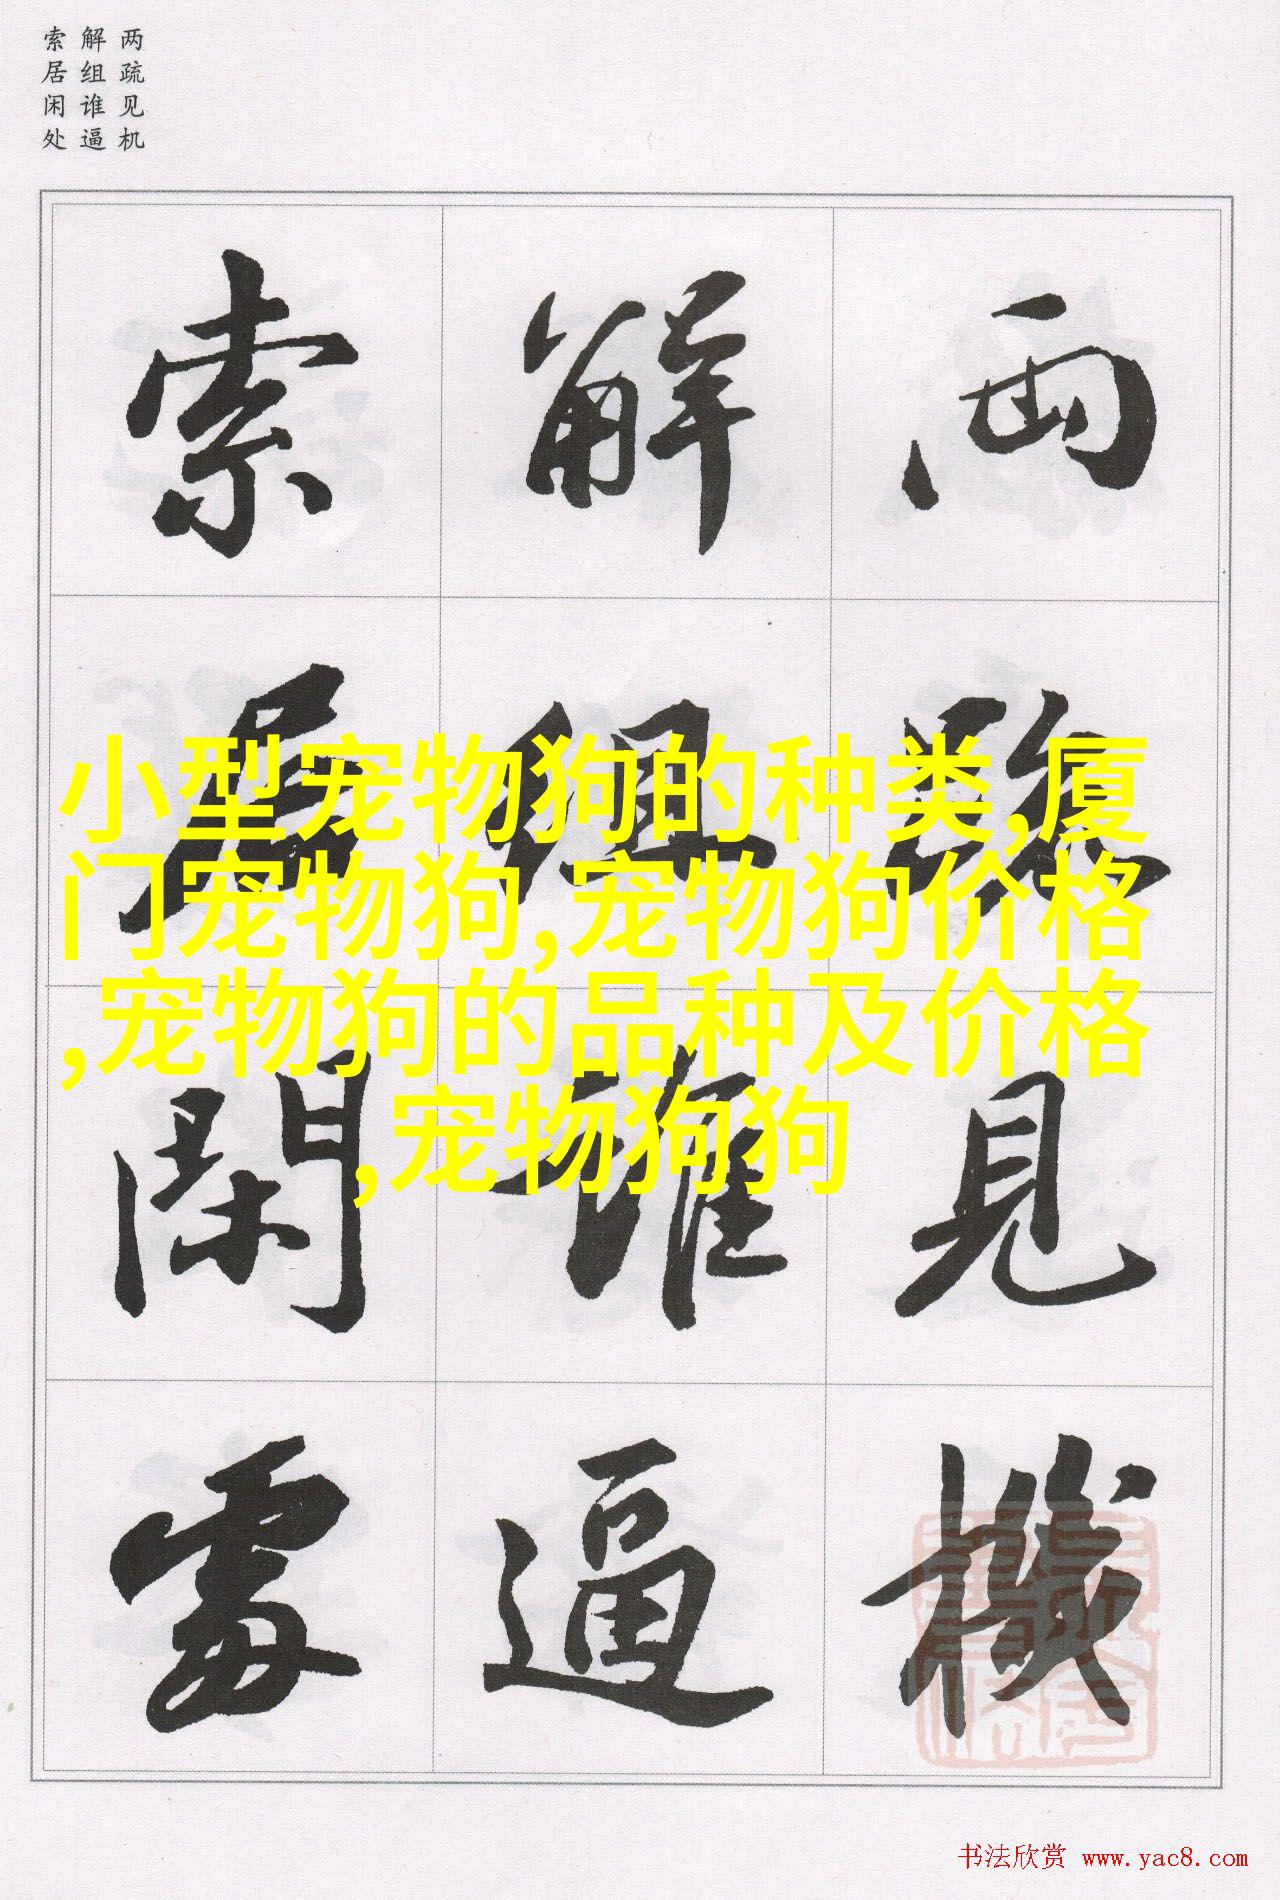 两疏见机
解组谁逼
索居闲处
两疏見機
解組誰逼
索居閑處
小型宠物狗的种类,厦
门宠物狗,宠物狗价格
,宠物狗的品种及价格
,宠物狗狗
书法欣赏 www.yac8.com